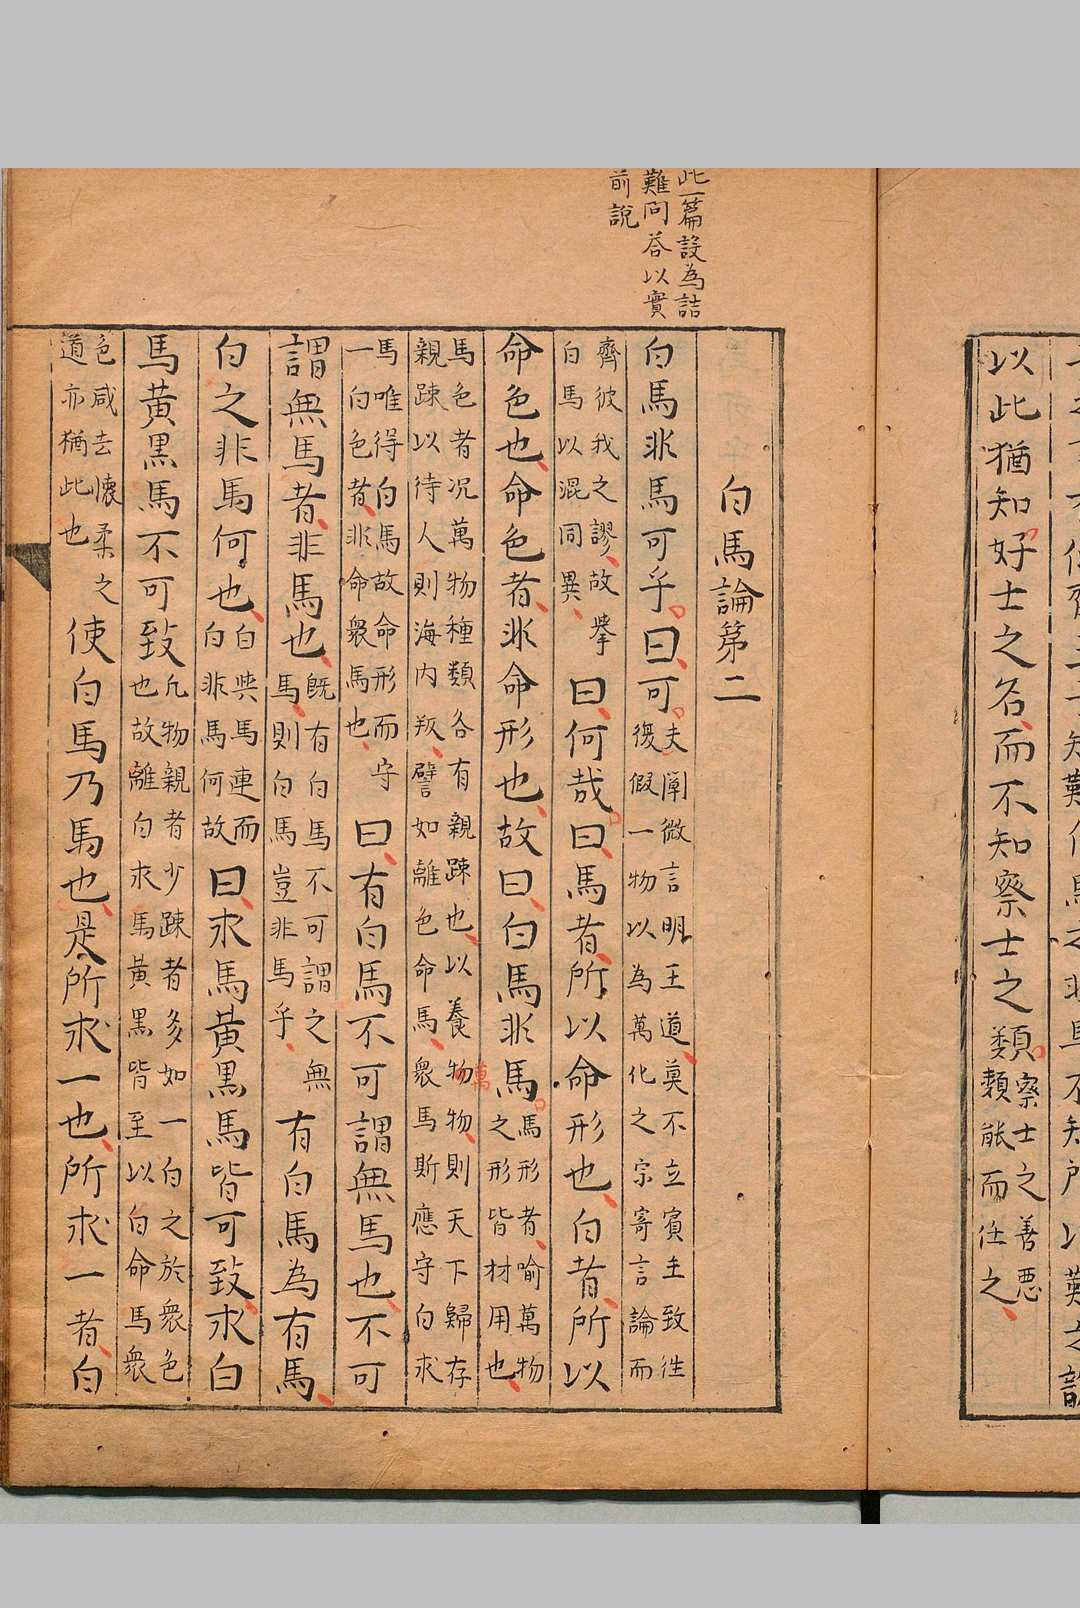 以此猶知好士之名而不知察士之類察士之善惡類能而任之
此一篇設為詰
難問答以實
前說
白馬論第二
白馬非馬可乎曰可夫闡微言明王道莫不立賓主致往復假一物以為萬化之宗寄言論而
齊彼我之謬故舉白馬以混同異曰何哉曰馬者所以命形也白者所以
命色也命色者非命形也故曰白馬非馬馬形者喻萬物之形皆材用也
馬色者況萬物種類各有親踈也以養萬物物則天下歸存親踈以待人則海內叛譬如離色命馬衆馬斯應守白求
馬唯得白馬故命形而守一白色者非命衆馬也曰有白馬不可謂無馬也不可
謂無馬者非馬也既有白馬不可謂之無馬則白馬豈非馬乎有白馬為有馬
白之非馬何也白與馬連而白非馬何故曰求馬黃黒馬皆可致求白
馬黃黒馬不可致凡物親者少踈者多如一白之於衆色也故離白求馬黃黒皆至以白命馬衆
色咸去懷柔之道亦猶此也使白馬乃馬也是所求一也所求一者白